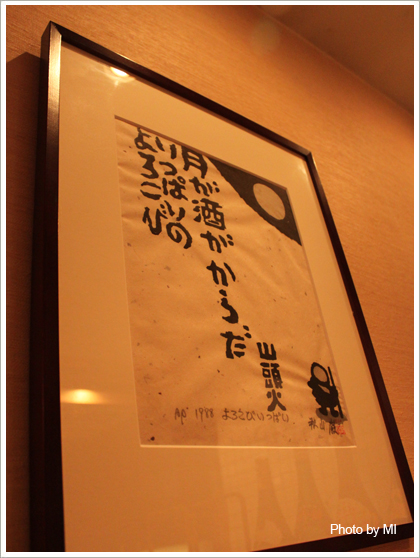 月が酒がからだ
いっぱいの
よろこび
山頭火
AP' 1988 よろこびいっぱい
Photo by MI